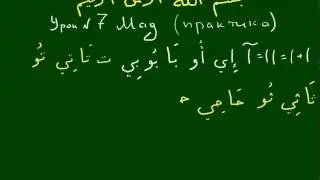 بسم الله الرحمن الرحيم
Урок № 7 Мад (практика)
ا+ا=اا=آ إِي أُو بَا بُو بِي ت تَا تِي تُو
ثَا ثِي ثُو حَا حِي ح